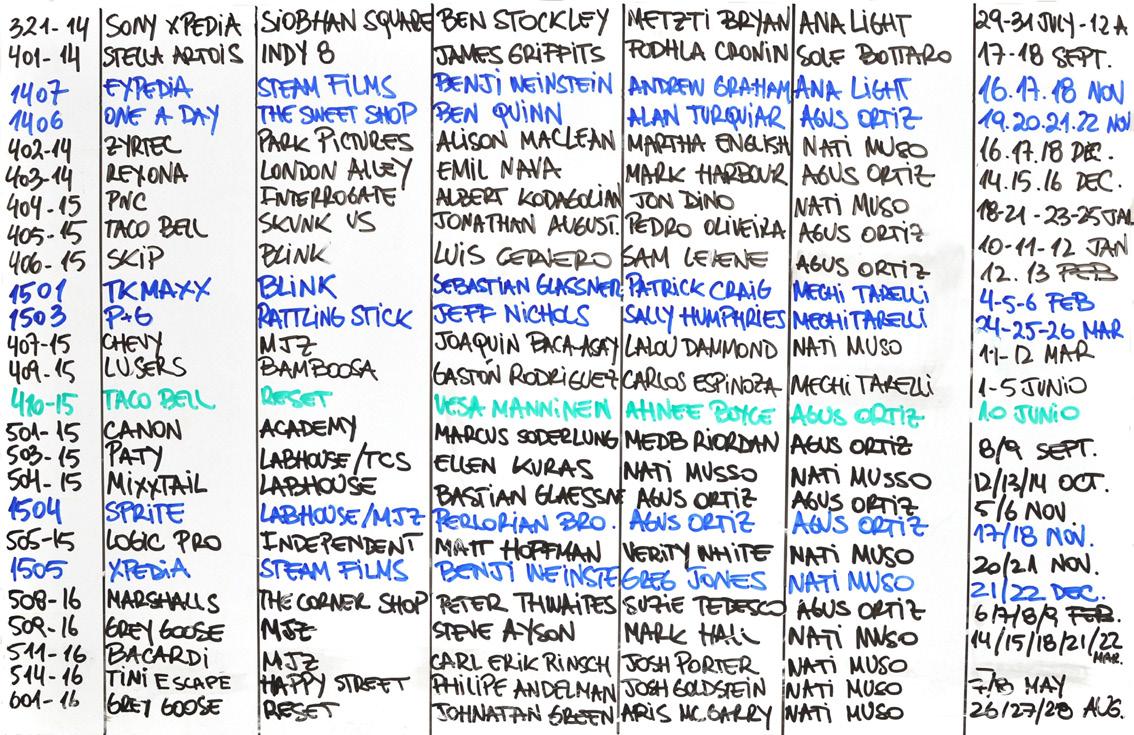 321-14 SONY XPEDIA SIOBHAN SQUARE BEN STOCKLEY METZTI BRYAN ANA LIGHT 29-31 JULY-12 A
401-14 STELLA ARTOIS INDY 8 JAMES GRIFFITS FODHLA CRONIN SOLE BOTTARO 17-18 SEPT.
1407 EXPEDIA STEAM FILMS BENJI WEINSTEIN ANDREW GRAHAM ANA LIGHT 16.17.18 NOV
1406 ONE A DAY THE SWEET SHOP BEN QUINN ALAN TURQUIAR AGUS ORTIZ 19.20.21.22 NOV
402-14 ZYRTEC PARK PICTURES ALISON MACLEAN MARTHA ENGLISH NATI MUSO 16.17.18 DEC.
403-14 REXONA LONDON ALLEY EMIL NAVA MARK HARBOUR AGUS ORTIZ 14.15.16 DEC.
404-15 PNC INTERROGATE ALBERT KODAGOLIAN JON DINO NATI MUSO 18-21-23-25 JAN
405-15 TACO BELL SKUNK US JONATHAN AUGUST. PEDRO OLIVEIRA AGUS ORTIZ 10-11-12 JAN
406-15 SKIP BLINK LUIS CERVERO SAM LEVENE AGUS ORTIZ 12.13 FEB
1501 TKMAXX BLINK SEBASTIAN GLASSNER PATRICK CRAIG MECHI TARELLI 4-5-6 FEB
1503 P+G RATTLING STICK JEFF NICHOLS SALLY HUMPHRIES MECHI TARELLI 24-25-26 MAR
407-15 CHEVY MJZ JOAQUIN BACA-ASAY LALOU DAMMOND NATI MUSO 11-12 MAR
409-15 LU.SERS BAMBOOSA GASTÓN RODRIGUEZ CARLOS ESPINOZA MECHI TARELLI 1-5 JUNIO
410-15 TACO BELL RESET VESA MANNINEN AHNEE BOYCE AGUS ORTIZ 10 JUNIO
501-15 CANON ACADEMY MARCUS SODERLUNG MEDB RIORDAN AGUS ORTIZ 8/9 SEPT.
503-15 PATY LABHOUSE/TCS ELLEN KURAS NATI MUSSO NATI MUSSO 12/13/14 OCT.
504-15 MIXXTAIL LABHOUSE BASTIAN GLAESSNE AGUS ORTIZ AGUS ORTIZ 5/6 NOV
1504 SPRITE LABHOUSE/MJZ PERLORIAN BRO. AGUS ORTIZ AGUS ORTIZ 17/18 NOV.
505-15 LOGIC PRO INDEPENDENT MATT HOFFMAN VERITY WHITE NATI MUSO 20/21 NOV.
1505 XPEDIA STEAM FILMS BENJI WEINSTE GREG JONES NATI MUSO 21/22 DEC.
508-16 MARSHALLS THE CORNER SHOP PETER THWAITES SUZIE TEDESCO AGUS ORTIZ 6/7/8/9 FEB.
509-16 GREY GOOSE MJZ STEVE AYSON MARK HALL NATI MUSO 14/15/18/21/22 MAR.
511-16 BACARDI MJZ CARL ERIK RINSCH JOSH PORTER NATI MUSO
514-16 TINI ESCAPE HAPPY STREET PHILIPE ANDELMAN JOSH GOLDSTEIN NATI MUSO 7/8 MAY
601-16 GREY GOOSE RESET JOHNATAN GREEN ARIS MCGARRY NATI MUSO 26/27/28 AUG.